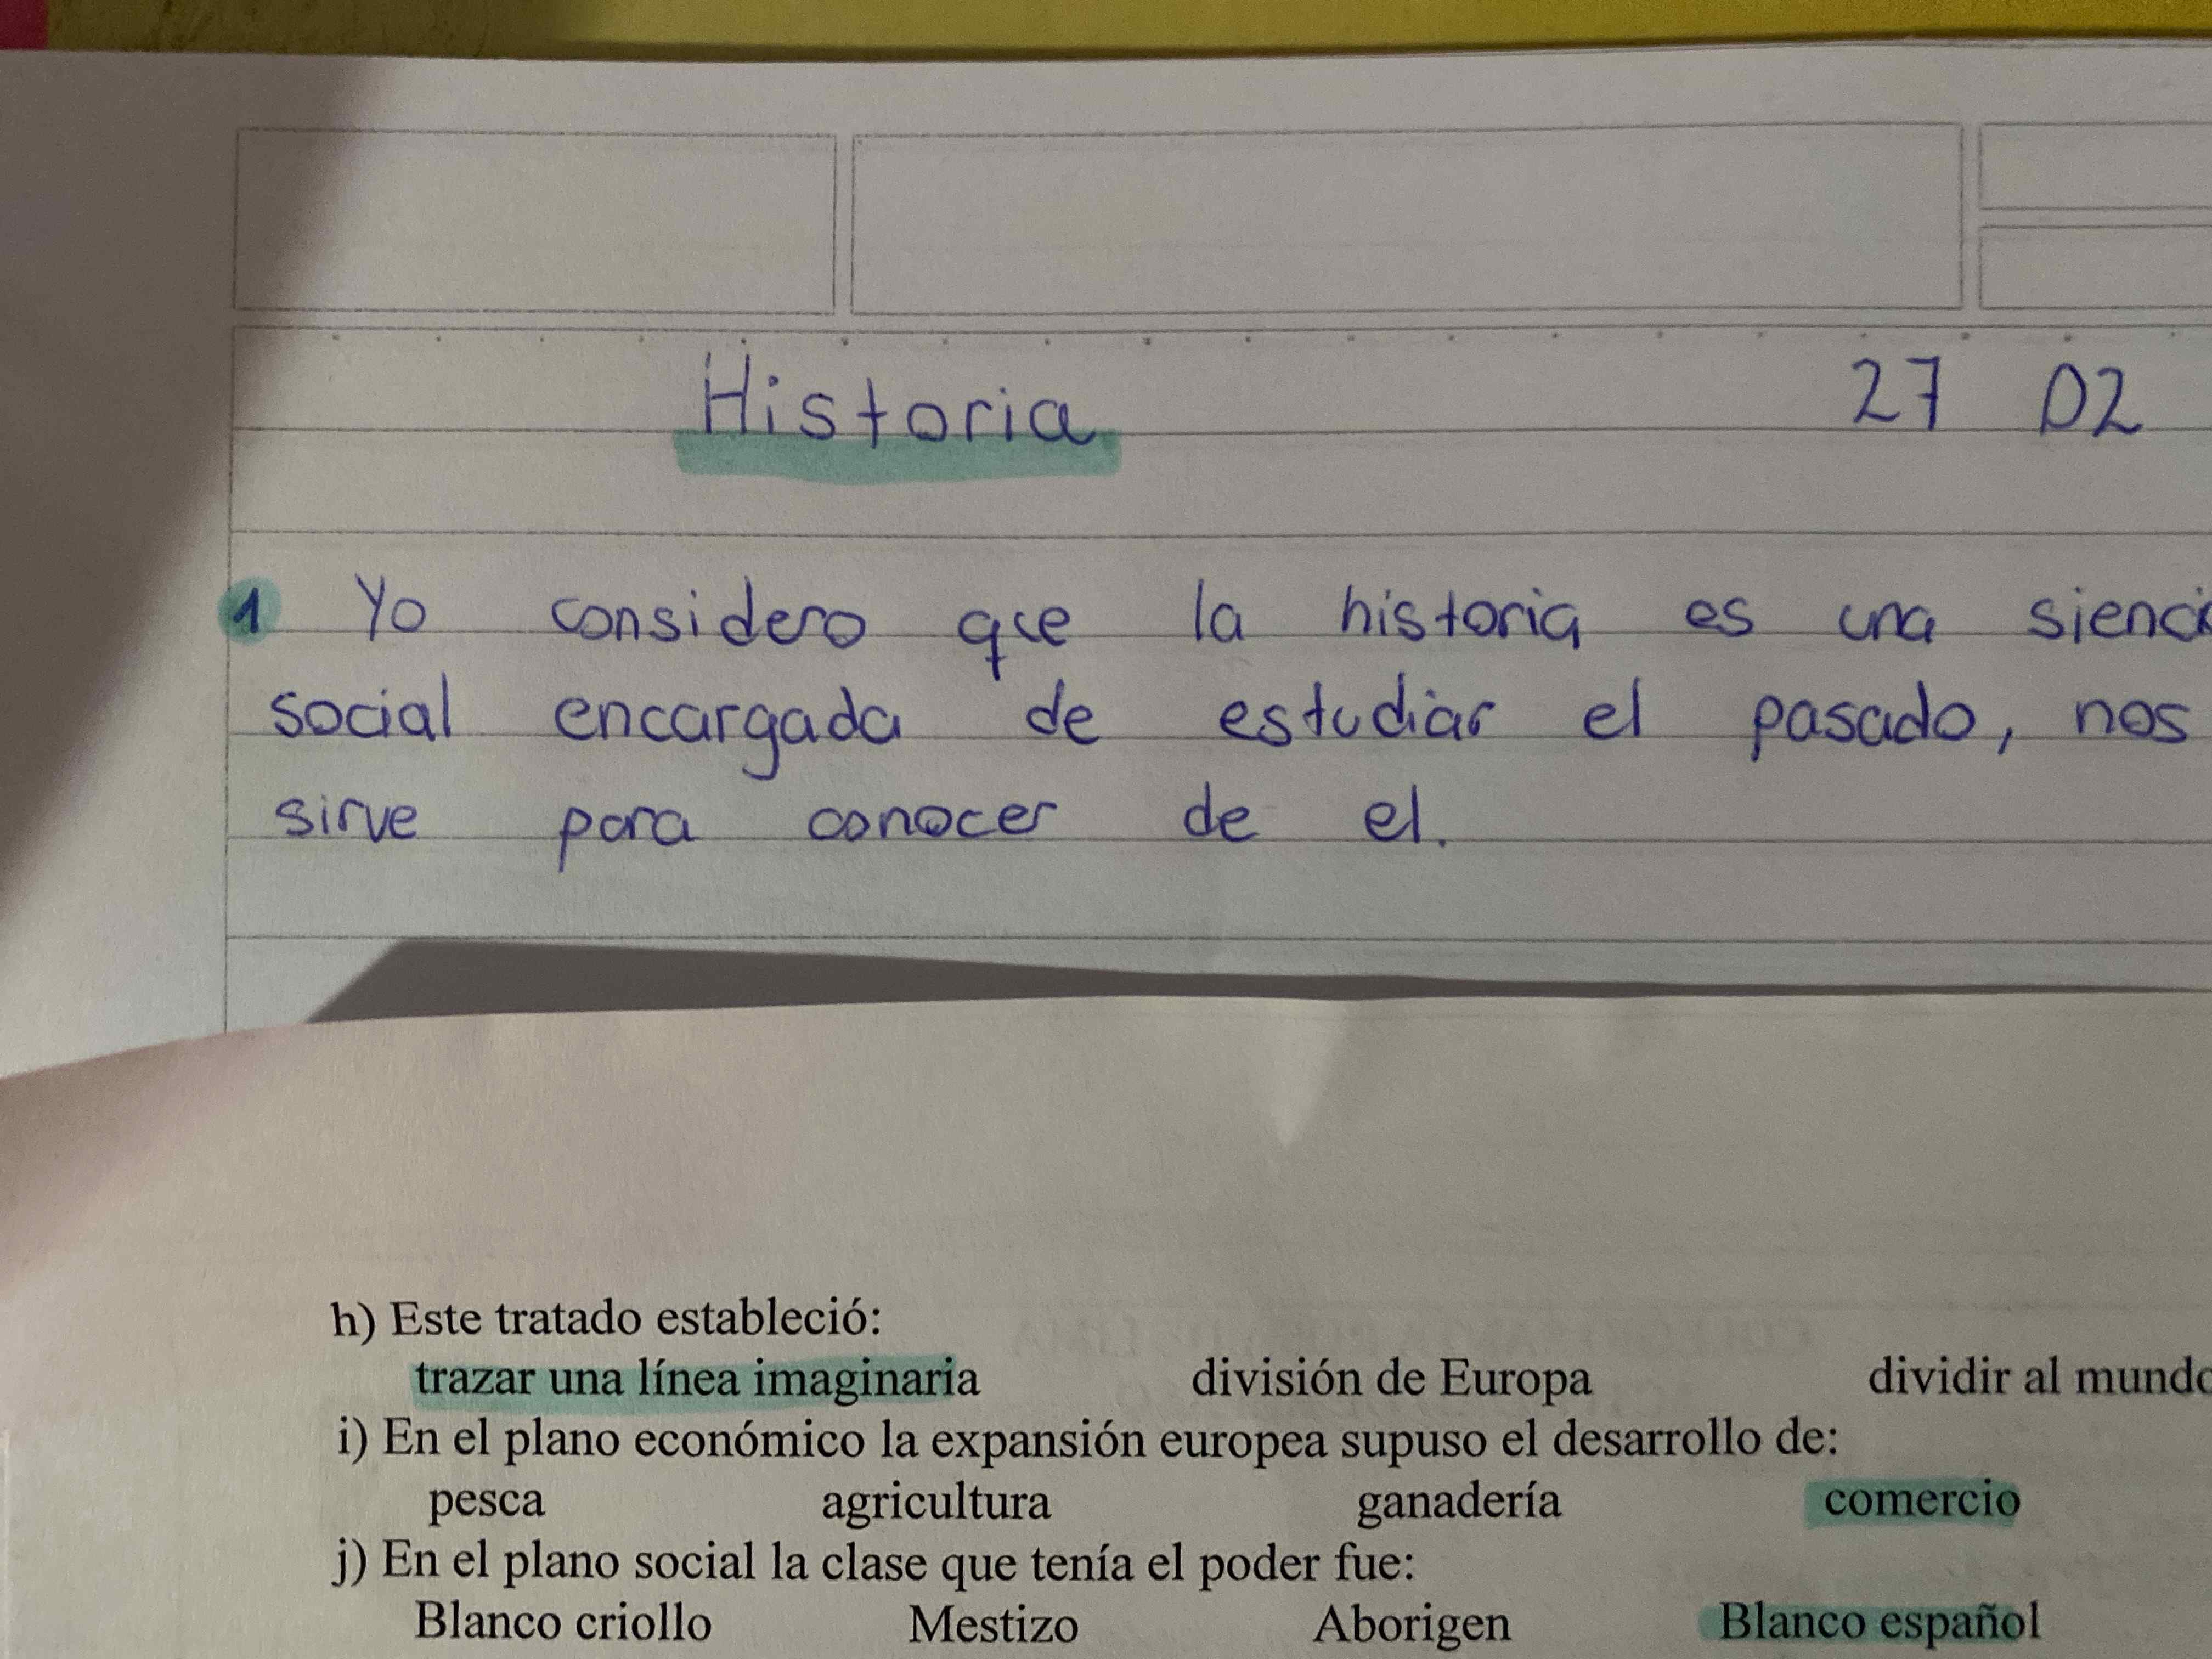 Historia 27 02
1 Yo considero que la historia es una sienci
social encargada de estudiar el pasado, nos
sirve para conocer de el.
h) Este tratado estableció:
trazar una línea imaginaria división de Europa dividir al mundo
i) En el plano económico la expansión europea supuso el desarrollo de:
pesca agricultura ganadería comercio
j) En el plano social la clase que tenía el poder fue:
Blanco criollo Mestizo Aborigen Blanco español